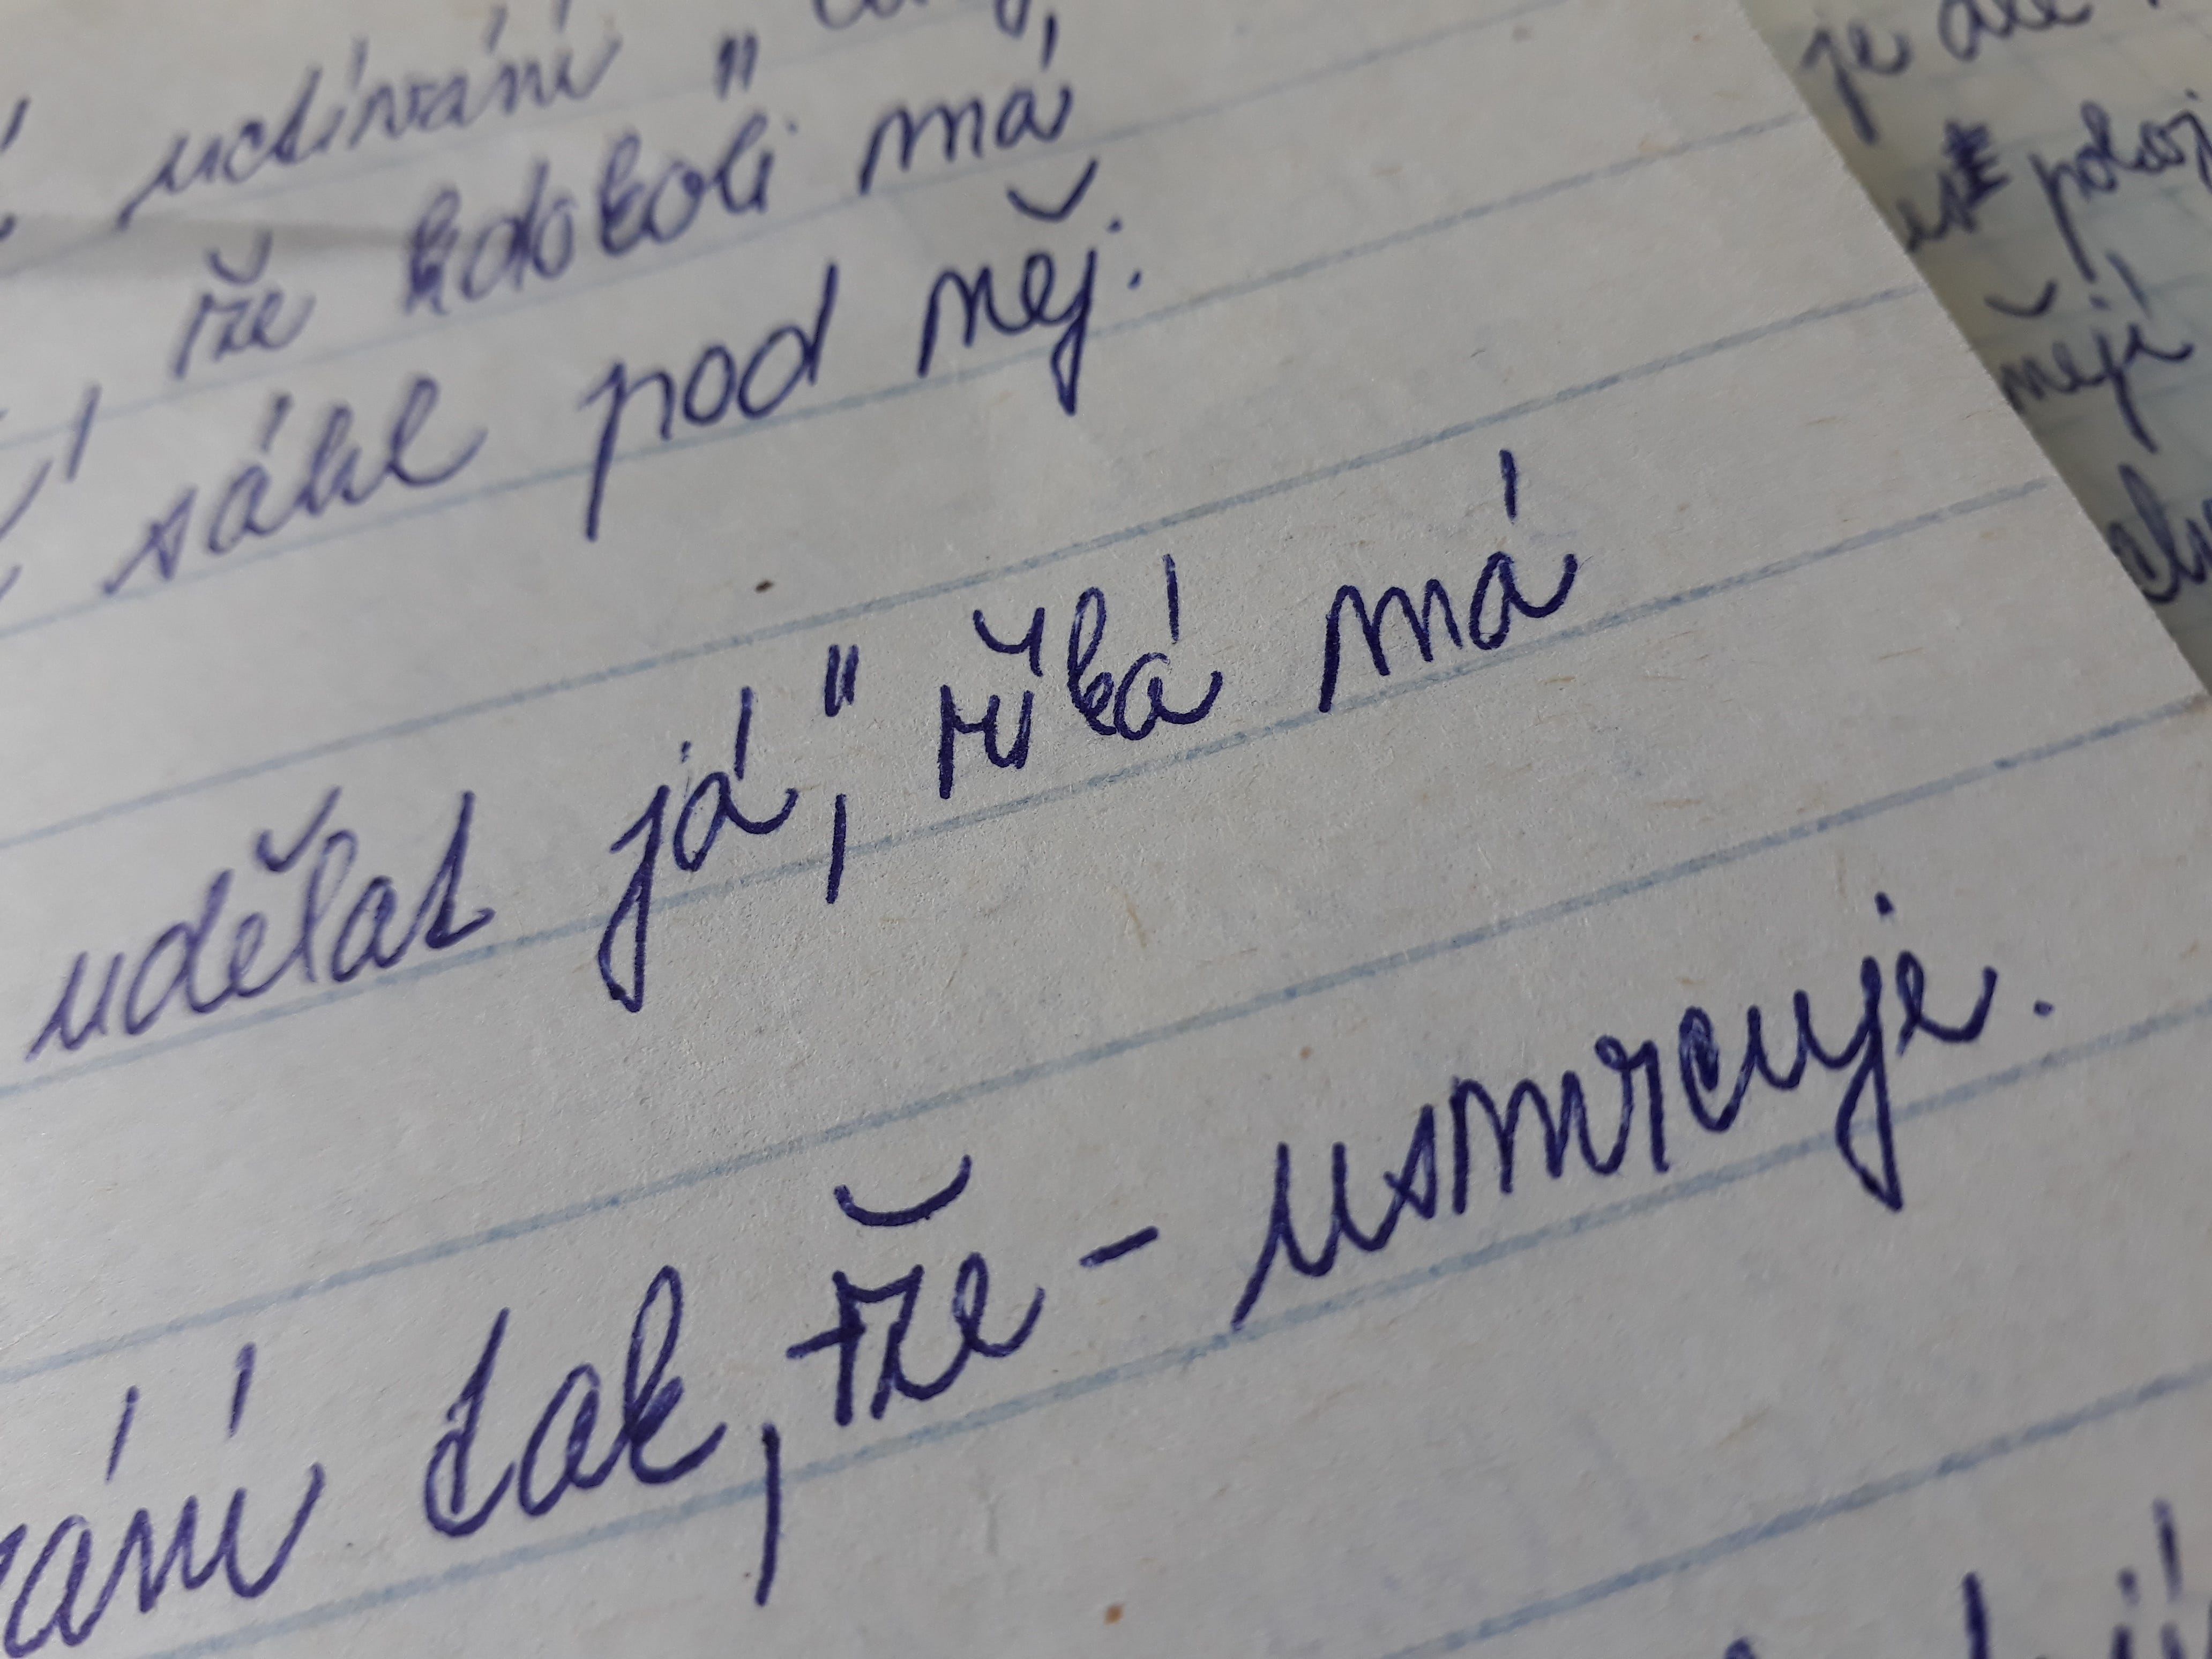 udívání "
že kdokoli má
sáhl pod něj.
udělat já," říká má
ání tak, že - usmrcuje.
je ale
mějí